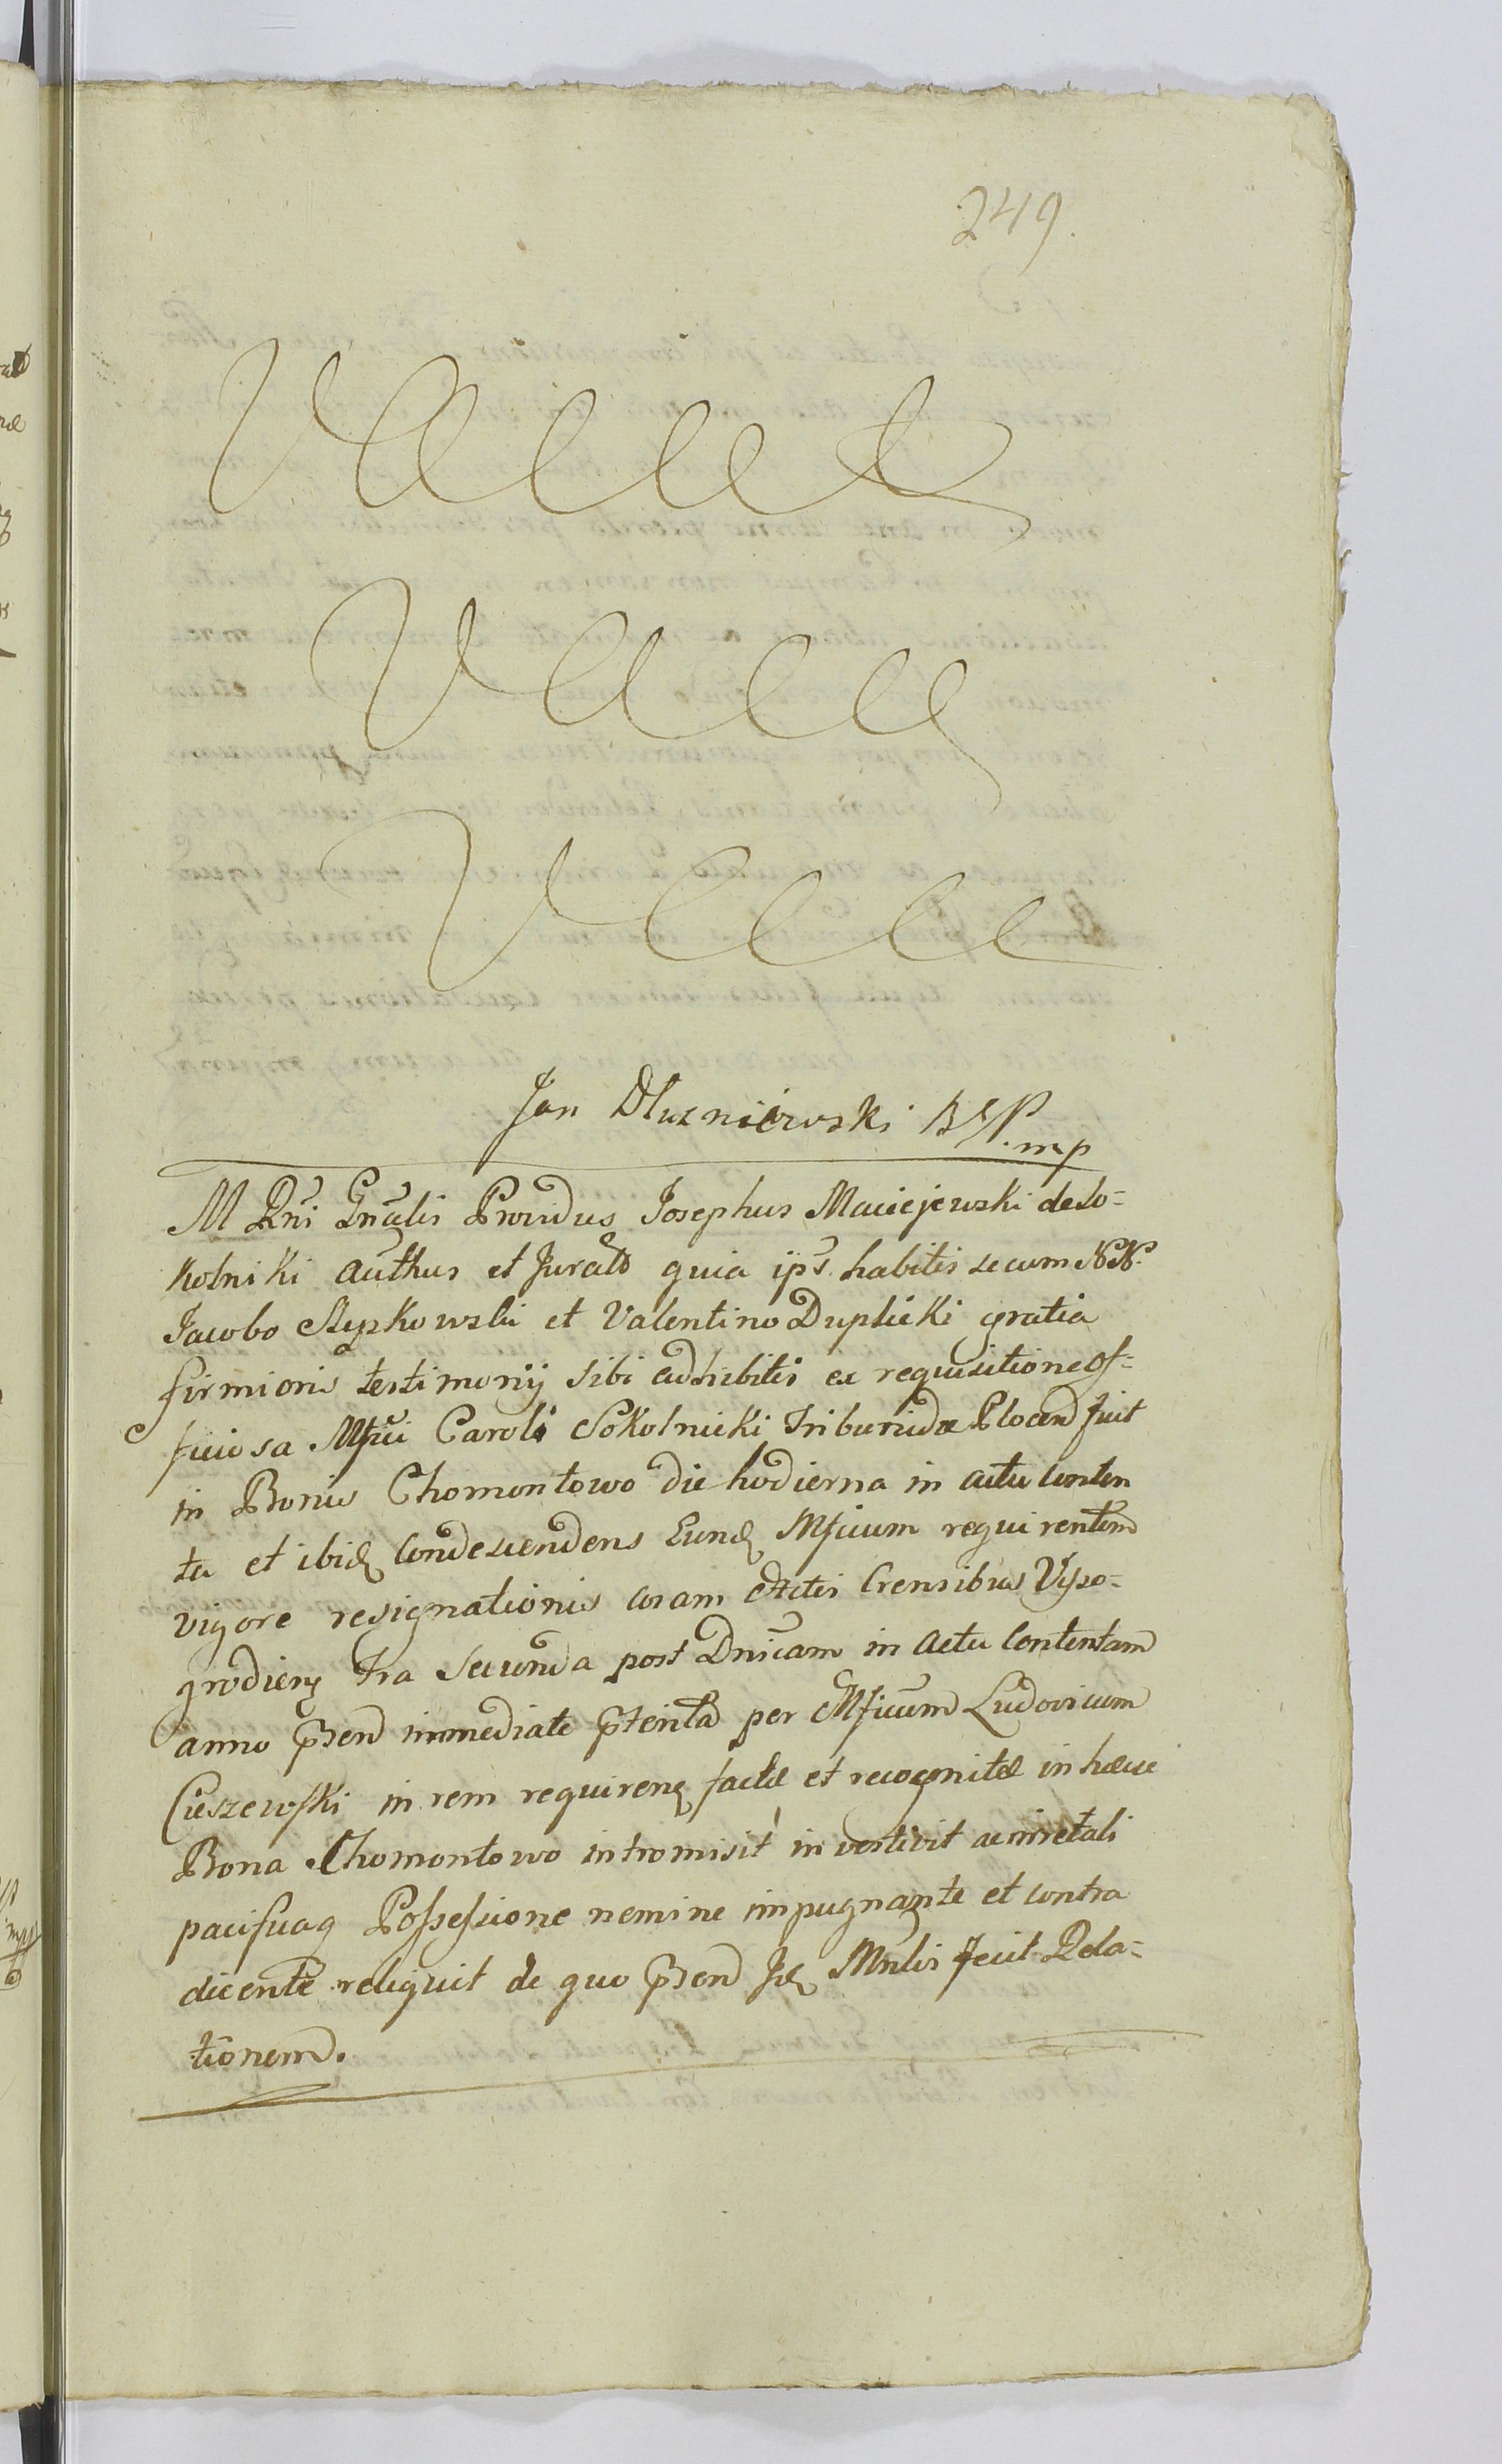 249.
Jan Dłuzniewski BGP. mp
M Rni Gnalis Providus Josephus Maciejewski de So-
kolniki authus et Jurats quia ips habitis secum NN.
Jacobo Stępkowski et Valentino Duplicki gratia
firmioris testimonij sibi adhibitis ex requisitione of-
ficiosa Mfici Caroli Sokolnicki Tribunidæ Plocen fuit
in Bonis Chomontowo die hodierna in actu conten
ta et ibid condescendens Eund Mficum requirentem
vigore resignationis coram Actis Crensibus Vyso-
grodien fra secunda post Dnicam in actu Contentam
anno prsen immediate prterita per Mficum Ludovicum
Cieszewski in rem requiren factæ et recognitæ in hæcce
Bona Chomontowo intromisit investivit ac in retali
pacificaq Possessione nemine impugnante et contra
dicente reliquit de quo prsen Id Mnlis fecit Rela-
tionem.